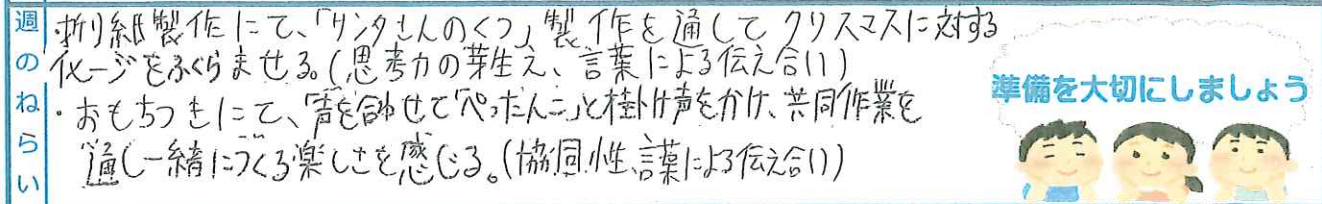 週のねらい
・折り紙製作にて、「サンタさんのくつ」製作を通してクリスマスに対する
イメージをふくらませる。(思考力の芽生え、言葉による伝え合い)
・おもちつきにて、声を合わせて「ぺったんこ」と掛け声をかけ、共同作業を
通し一緒につくる楽しさを感じる。(協同性、言葉による伝え合い)
準備を大切にしましょう